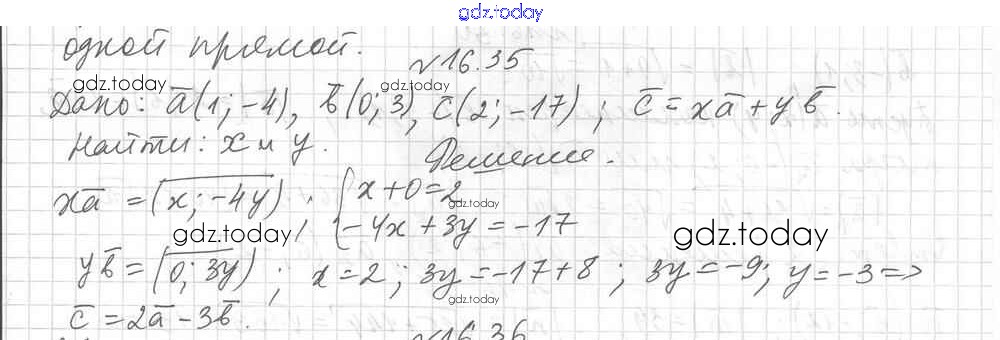 gdz.today
одной прямой.
№16.35
gdz.today
gdz.today
Дано: a̅(1; -4), b̅(0; 3), c̅(2; -17) ; c̅ = xa̅ + yb̅.
Найти: x и y.
Решение.
xa̅ = (x; -4y) ; { x + 0 = 2
-4x + 3y = -17
gdz.today
gdz.today
gdz.today
yb̅ = (0; 3y) ; x = 2 ; 3y = -17 + 8 ; 3y = -9; y = -3 =>
gdz.today
c̅ = 2a̅ - 3b̅.
№16.36